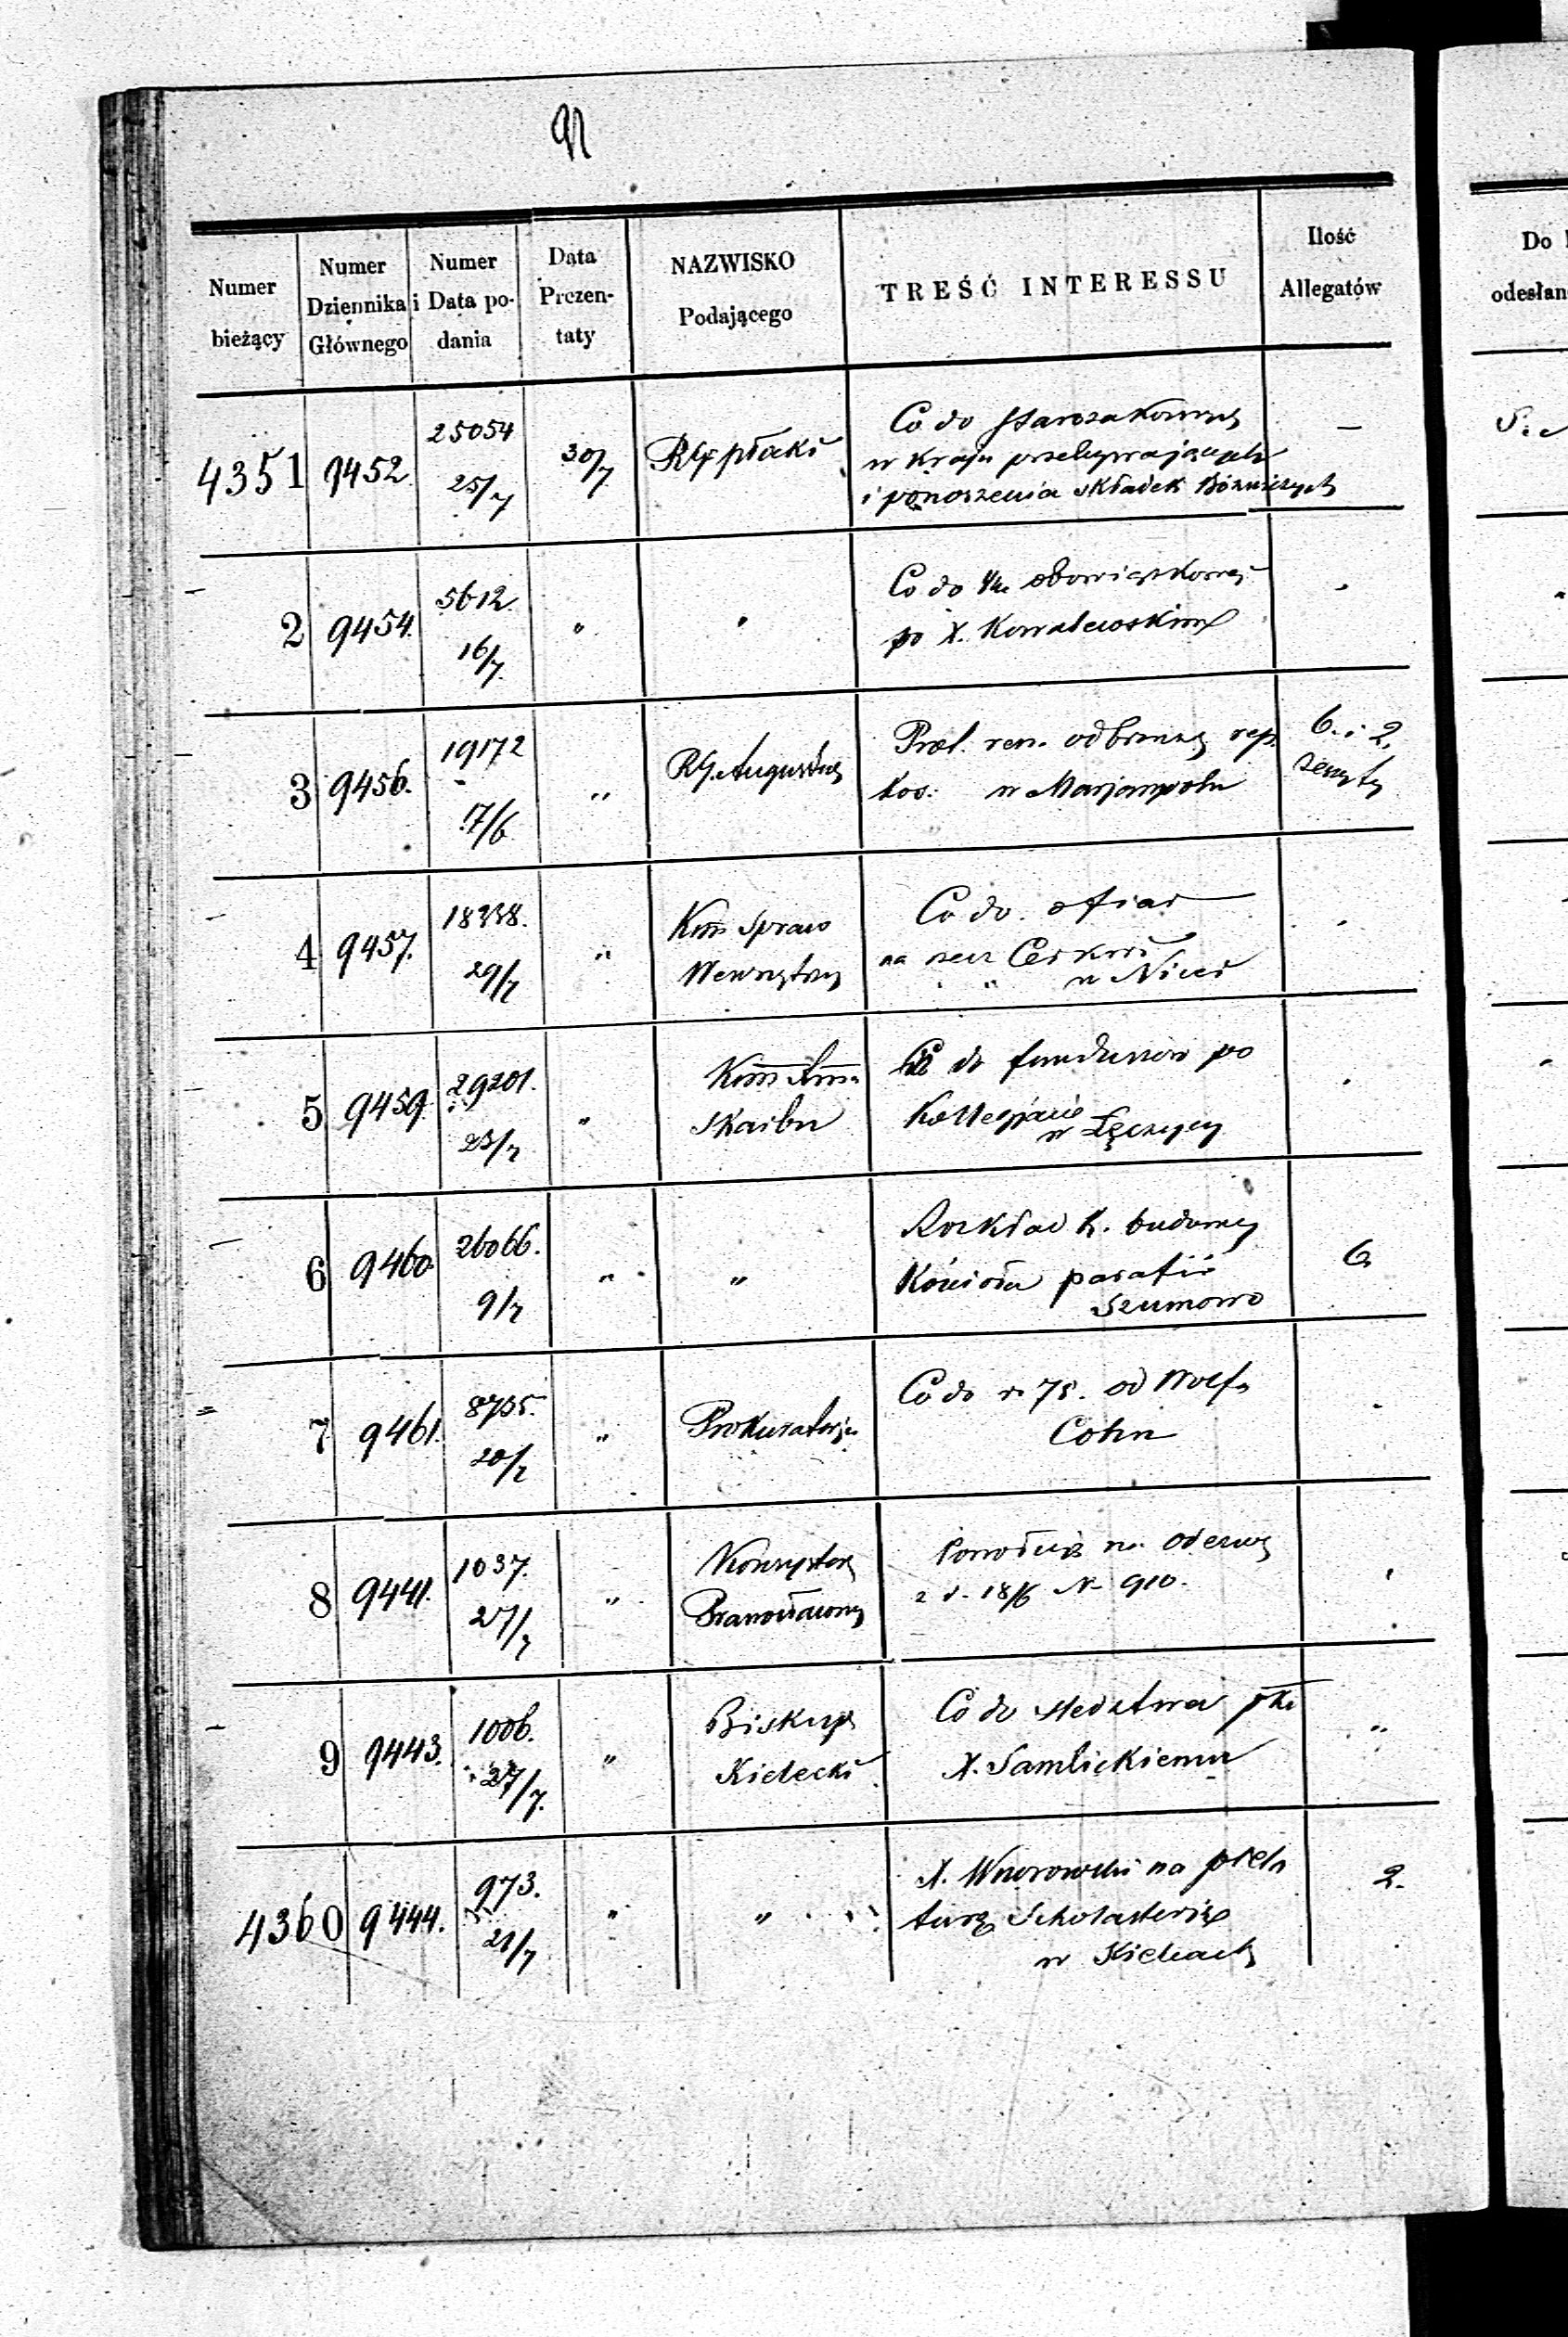 Numer bieżący
Numer Dziennika Głównego
Numer i Data podania
Data Prezentaty
NAZWISKO Podającego
TREŚĆ INTERESSU
Ilość Allegatów
Do
odesłan
4351 9452 25054 25/7 30/7 RG płocki
Co do starozakonnych
w kraju przebywających
i ponoszenia składek Bóżniczych
—
2 9454. 5612. 16/7. " "
Co do obowiązkowej
po X. Kowalewskim
3 9456. 19172 17/6 " RG. Augustow
rew. odbudowy rep.
kos. w Marjampolu
6. i 2.
zeszyty
4 9457. 18338. 29/7 " Kom Spraw
Wewnętrzny
Co do ofiar
na rzecz Cerkwi
w Nicei
5 9459 29201. 23/7 "
Skarbu
Co do funduszów po
Kollegjacie
w Łęczycy
6 9460 26066. 9/7 " "
Rozkład k. budowy
Kościoła parafii
Szumowo
6
7 9461. 8735. 20/7 " Prokuratorja
Co do r. 75. od Wolfa
Cohn
8 9441. 1037. 27/7 " Konsystorz
Prawosławny
na odezwę
z d. 18/6 N 910.
9 9443. 1006. 27/7. " Biskup
Kielecki
Co do śledztwa
X. Samlickiemu
"
4360 9444. 973. 21/7 " "
X. Wnorowski na prela
turę Scholasterię
w Kielcach
2.